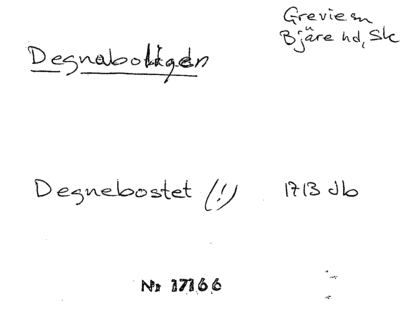 Grevie sn
Bjäre hd, Sk
Degnaboligen
Degnebostet (!) 1713 Jb
Nr 17166